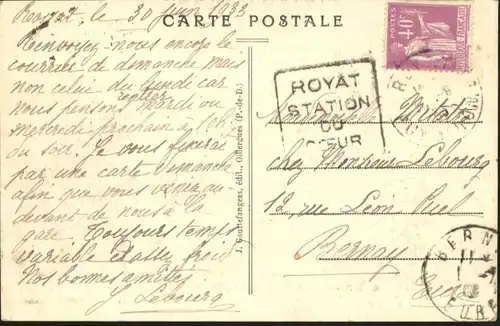 Royat le 30 juin 1933
CARTE POSTALE
Renvoyez-nous encore le
courrier de dimanche mais
non celui du lundi car
nous pensons rentrer mardi ou
mercredi prochain à
du soir. Je vous
par une carte dimanche
afin que vous veniez au
devant de nous à la
gare. Toujours temps
variable & assez froid
Nos bonnes amitiés
J. Lebourg
J. Gouttefangeas, édit., Olliergues (P.-de-D.)
40c
ROYAT
STATION
DU
CŒUR
Mademoiselle
chez Monsieur Lebourg
12 rue Léon
Bernay
Eure
BERNAY
EURE